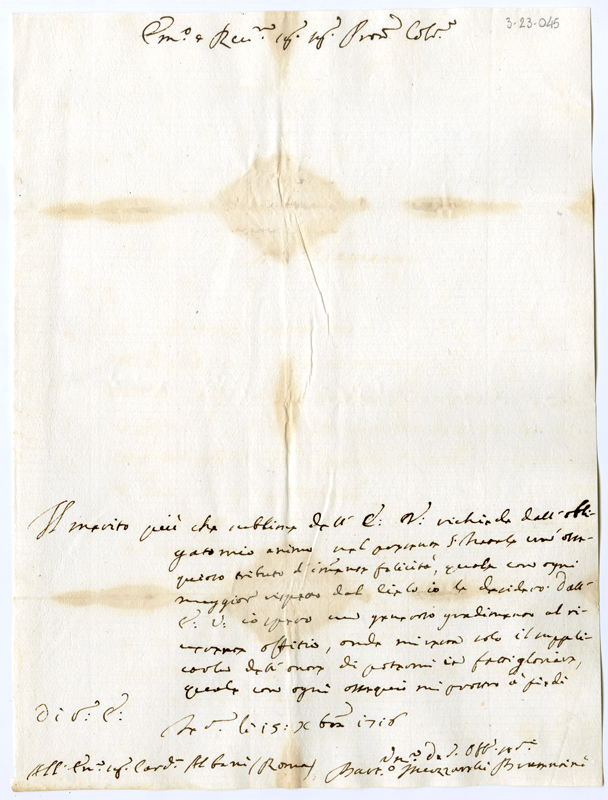 3-23-045
Em.o e Rev.mo Sig.r Sig.r Pron Col.mo
Il merito più che sublime dell' E: V: richiede dall' obli-
gato mio animo nel presente S. Natale un' osse-
quioso tributo d' immensa felicità, quale con ogni
maggior rispetto dal Cielo io le desidero. Dall'
E: V: io spero un generoso gradimento al ri-
verente offitio, onde mi resta solo il suppli-
carla dell' onor di potermi in fatti gloriare,
quale con ogni ossequio mi protesto à piedi
Di V: E:
li 15: Xbre 1716
All' Em.o Sig. Card. Albani (Roma)
Um.o De.o Obb. Ser.
Bart.o